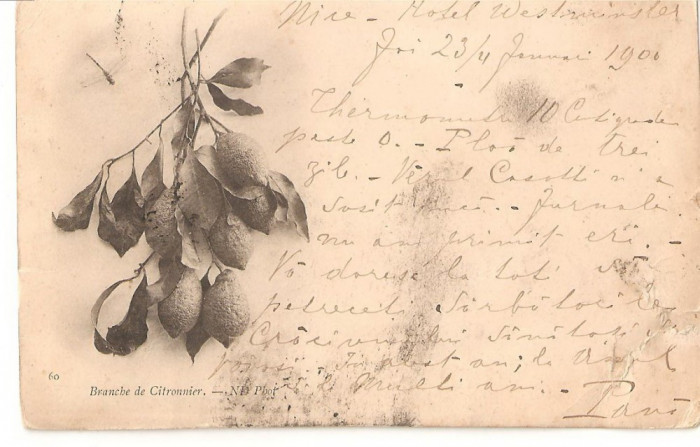 Nice - Hotel Westminster
Joi 23/4 Januari 1900
Thermometru 10 Centigrade
peste 0. - Ploă de trei
zile. - Verul Casotti n'a
sosit încă. - Jurnale
nu am primit eri. -
Vă doresc la toți să
petreceți Sărbătoci
Crăciunului sănătoși
voioși. În acest an; la
Mulți ani. -
60
Branche de Citronnier. — ND Phot